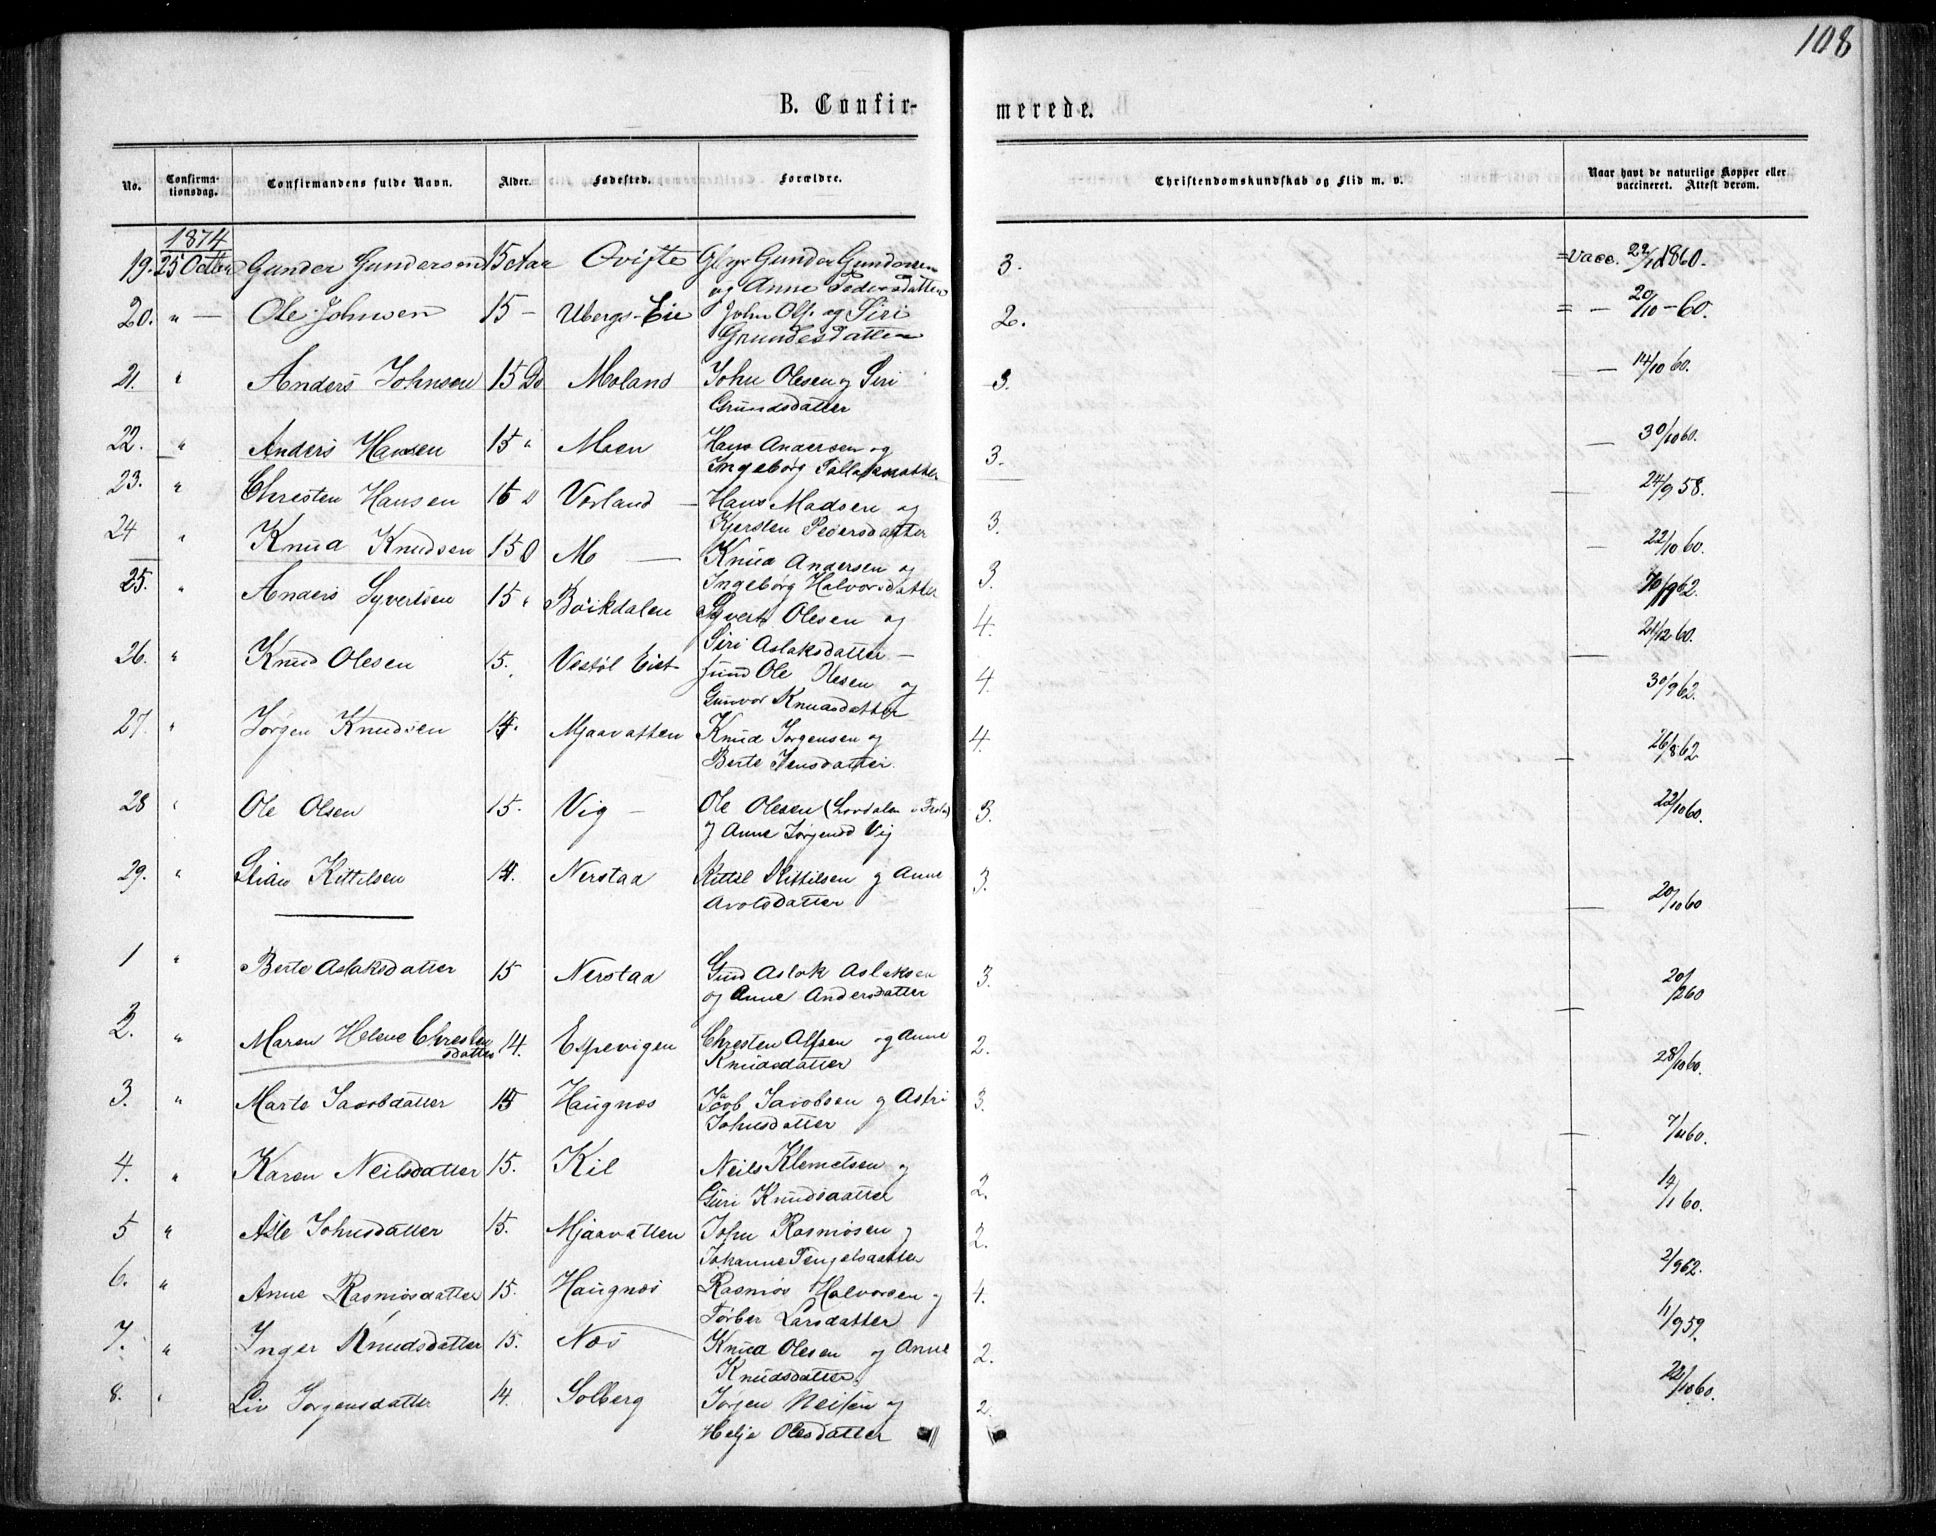 108
B. Confirmerede.
No. Confirmationsdag. Confirmandens fulde Navn. Alder. Fødested. Forældre. Christendomskundskab og Flid m. v. Naar havt de naturlige Kopper eller vaccineret. Attest derom.
1874
19. 25 Octbr Gunder Gundersen 15 Aar Gunder Gundersen 3. Vacc. 22/10 1860.
og Anne Pedersdatter
20. " — Ole Johnsen 15 — Ubergs-Eie John Ols. og Siri 2. = — 20/10 - 60.
Grundesdatter
21. " Anders Johnsen 15 Do Moland John Olesen og Siri 3. — 14/10 60.
Grundsdatter
22. " Anders Hansen 15 " Moen Hans Andersen og 3. — 30/10 60.
Ingeborg
23. " Chresten Hansen 15 " Vorland — Hans Madsen og 3. — 24/9 58.
Kjersten Pedersdatter
24 " Knud Knudsen 15 M — Knud Andersen og 3. — 22/10 60.
Ingeborg Halvorsdatter
25. " Anders Syvertsen 15 " Böikdalen Syvert Olesen og 4. 62.
Siri Aslaksdatter —
26. " Knud Olesen 15. Vestøl Eiet Ole Olesen og 4. — 21/12 60.
Gunvor Knudsdatter
27. " Jørgen Knudsen Mjaavatten Knud Jørgensen og 4. 30/9 62.
Berte Jensdatter
28 " Ole Olsen 15. Vig — Ole Olesen 3. — 26/8 62
og Anne Jørgensd Vig
22/10 60.
29. " Kittilsen 14. Nerstaa Kittil Kittilsen og Anne 3.
— 20/10 60
1 " Berte Aslaksdatter 15 Nerstaa Aslak Aslaksen 3.
og Anne Andersdatter
— 20/12 60
2. " Maren Helene Chrestensdatter 14. Espevigen Chresten Alfsen og Anne 2.
Knudsdatter
28/10 60.
3. " Marte Jacobdatter 15 Haugnæs Jacob Jacobsen og Astri 3.
Johnsdatter
— 7/11 60.
4. " Karen Neilsdatter 15. Kil Neils Klemetsen og
Guri Knudsdatter 2.
— 14/11 60.
5 " Asle Johnsdatter 15. Mjaavatten John Rasmøsen og 2.
Johanne Tengelsdatter
2/9 62.
6. " Anne Rasmøsdatter 15. Haugnæs Rasmøs Halvorsen og 4.
Tørber Larsdatter
11/9 59.
7. " Inger Knudsdatter 15. Næs Knud Olesen og Anne 2.
Knudsdatter.
22/10 60.
8. " Liv Jørgensdatter 14. Solberg Jørgen Neilsen og 2.
Helje Olesdatter